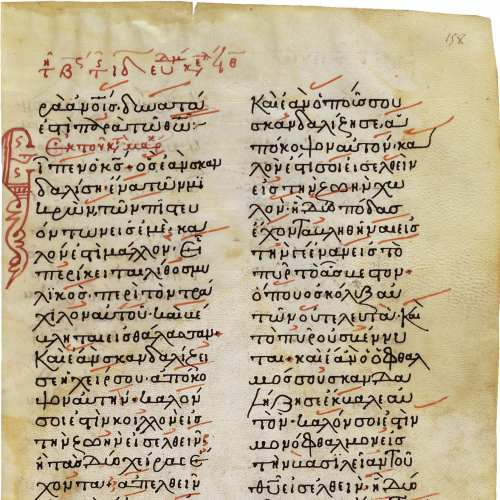 158
ρὰ ἀνοῖς· δυνατά
ἐστι παρὰ τῶ θῶ:–
Εἶπεν ὁ κς· ὃς ἐὰν σκαν
δαλίση· ἕνα τῶν μι
κρῶν τῶν πιστευ
όντων εἰς ἐμέ· κα
λόν ἐστι μᾶλλον· εἰ
περίκειται λίθος μυ
λικὸς· περὶ τὸν τρά
χιλον αὐτοῦ· καὶ βέ
βληται εἰς θάλασσαν·
Καὶ ἐὰν σκανδαλίζει
σε ἡ χείρ σου· ἀπόκο
ψον αὐτήν· καλόν
σοι ἐστὶν κοιλλὸν εἰς
τὴν ζωὴν εἰσελθεῖν
ἢ τὰς δύο χεῖρας ἔ
χοντα· ἀπελθεῖν
Καὶ ἐὰν ὁ ποῦς σου
σκανδαλίζη σε, ἀ
πόκοψον αὐτόν· κα
λόν ἐστί σοι εἰσελθεῖν
εἰς τὴν ζωὴν χω
λόν· ἢ δύο πόδας
ἔχοντα βληθῆναι εἰς
τὴν γέενναν εἰς τὸ
πῦρ τὸ ἄσβεστον·
ὅπου ὁ σκώληξ αὐ
τῶν οὐ τελευτᾶ· καὶ
τὸ πῦρ οὐ σβέννυ
ται· καὶ ἐὰν ὁ ὀφθαλ
μός σου σκανδα
λίζη σε ἔκβαλε αὐ
τόν· καλόν σοι ἐστὶν
μονόφθαλμον εἰς
τὴν βασιλείαν τοῦ
θυ εἰσελθεῖν· ἢ δύο